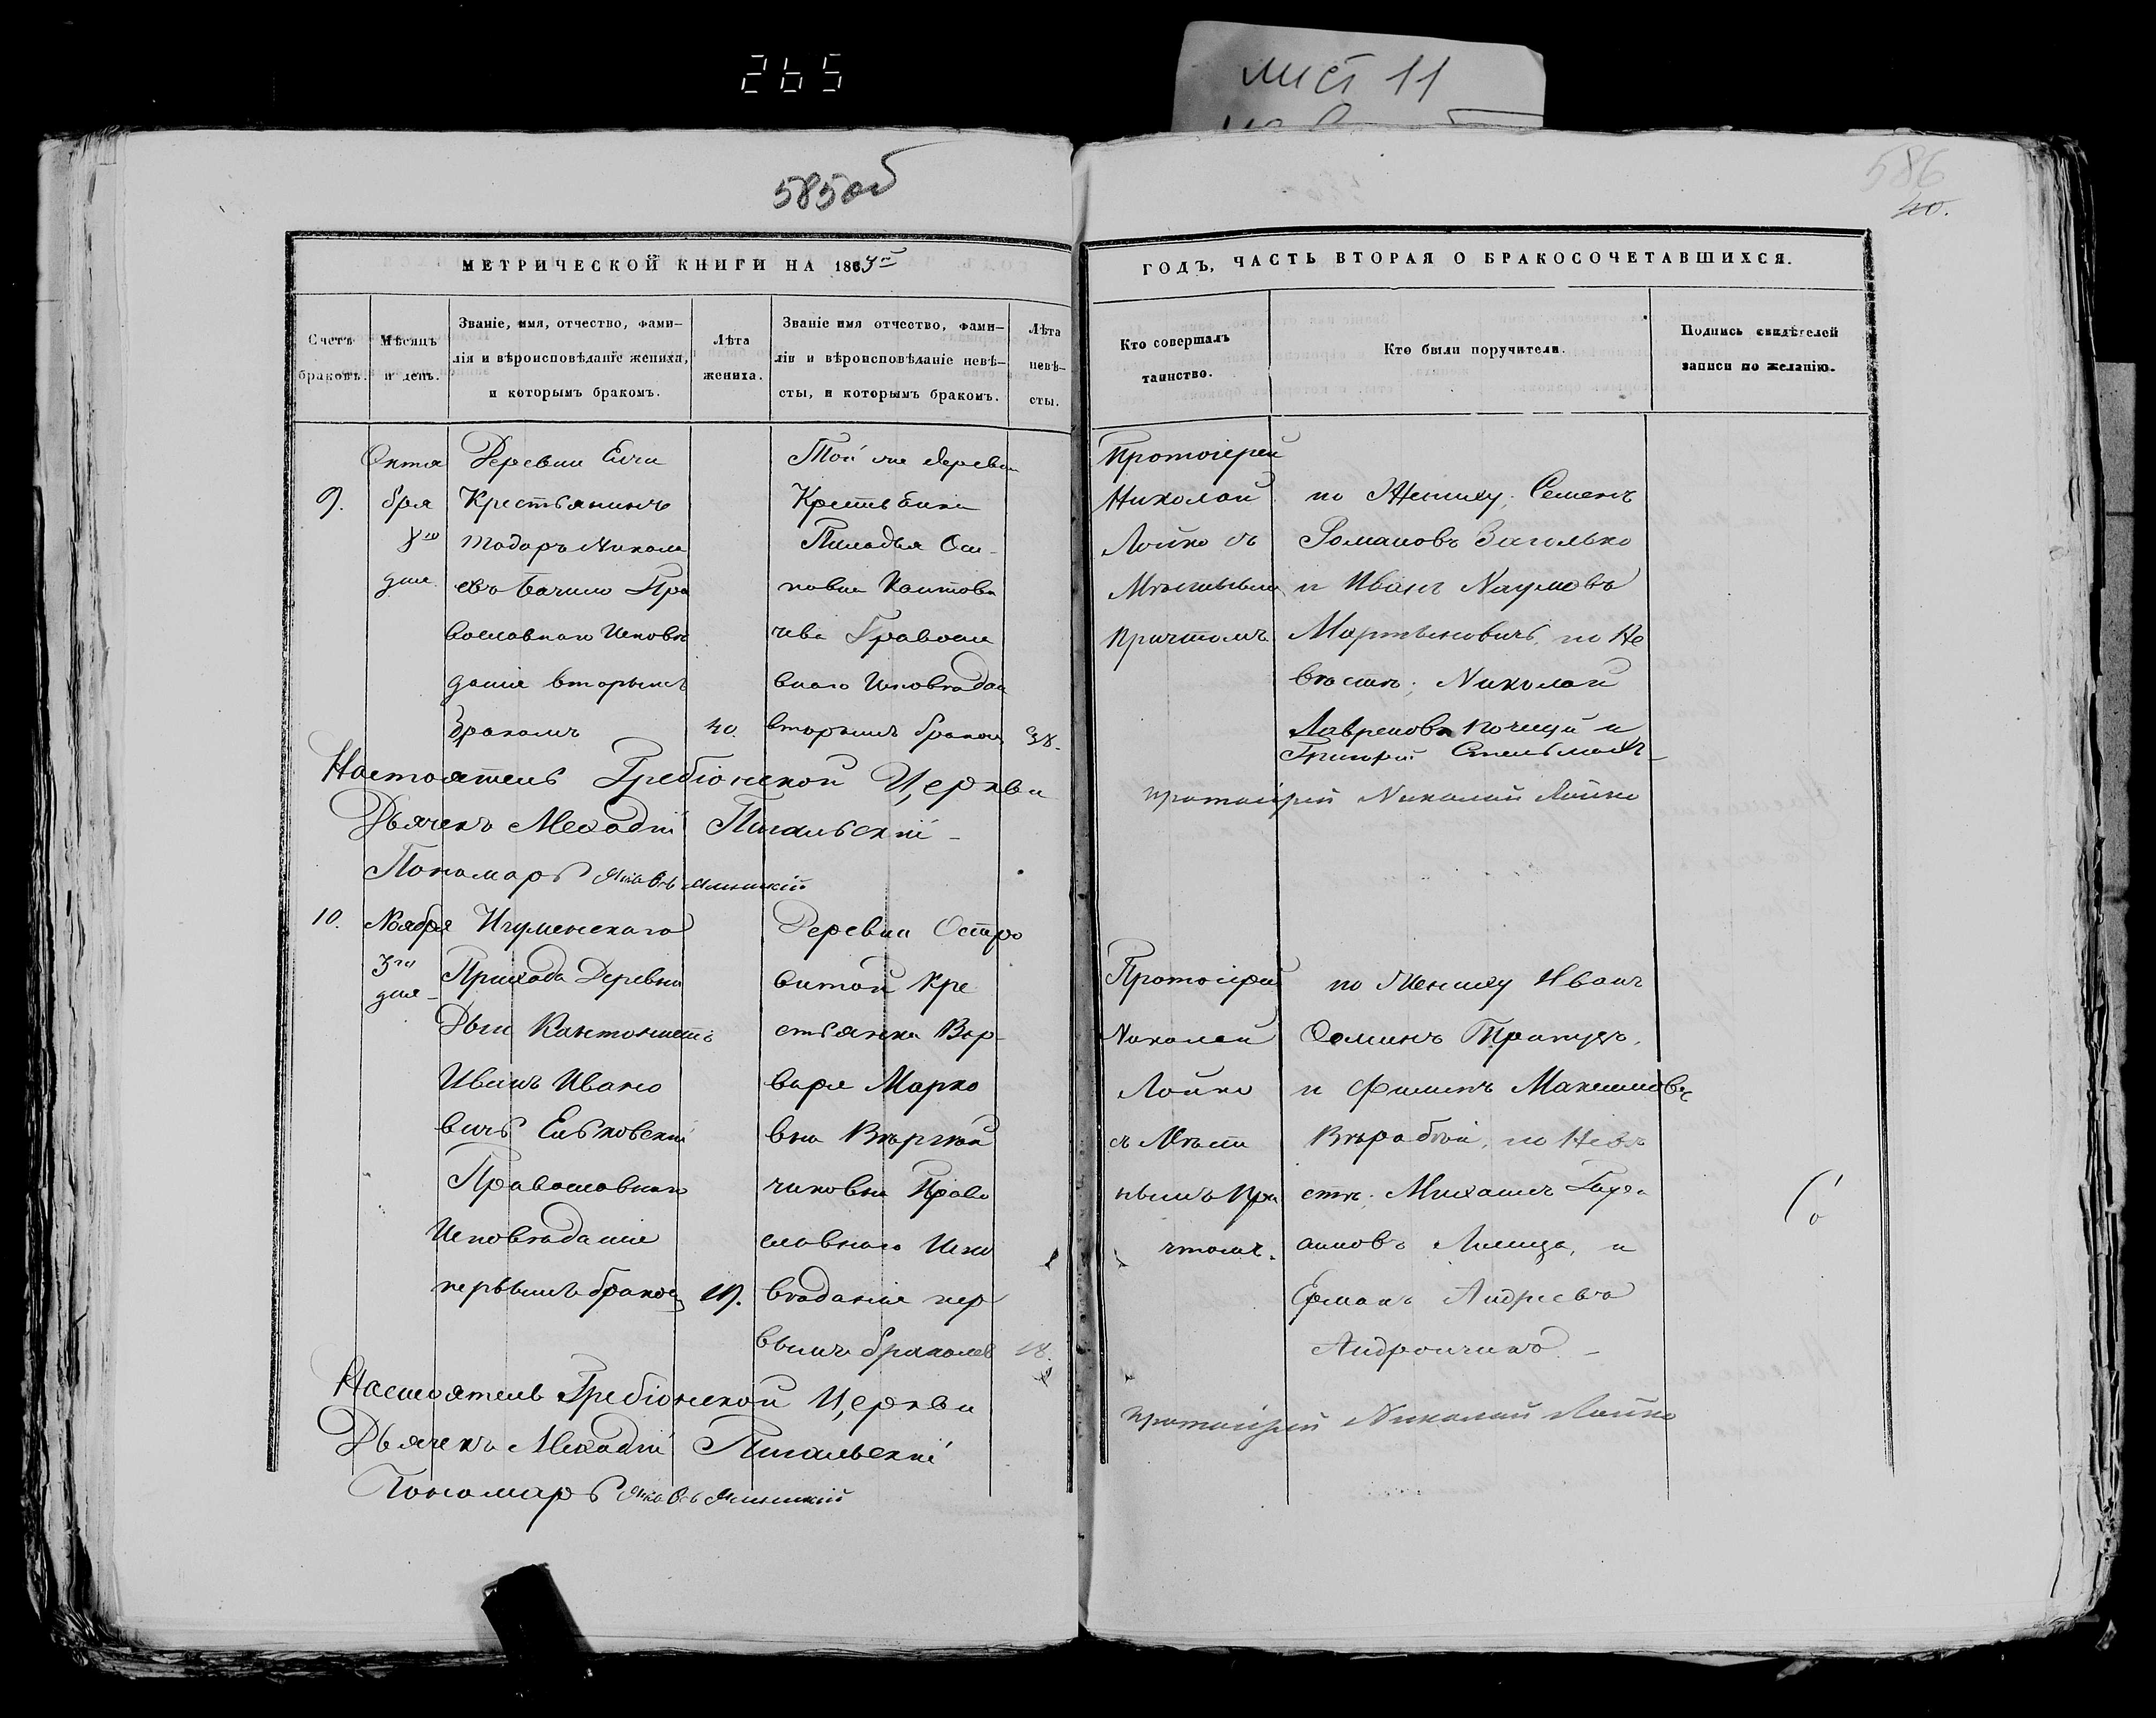 265
лист 11
585об
586
40.
МЕТРИЧЕСКОЙ КНИГИ НА 1863й
ГОДЪ, ЧАСТЬ ВТОРАЯ О БРАКОСОЧЕТАВШИХСЯ.
Счетъ браковъ.
Мѣсяцъ и день.
Званіе, имя, отчество, фами-
лія и вѣроисповѣданіе жениха,
и которымъ бракомъ.
Лѣта
жениха.
Званіе имя отчество, фами-
лія и вѣроисповѣданіе невѣ-
сты, и которымъ бракомъ.
Лѣта
невѣ-
сты.
Кто совершалъ
таинство.
Кто были поручители.
Подпись свидѣтелей
записи по желанію.
9.
Октя
бря
дня
Деревни
Крестьянинъ
Тодоръ Никола
евъ Бачило Пра
вославнаго Исповѣ
данія вторымъ
бракомъ
40.
Той же деревни
Крестьянка
Оси-
повна
Правосла
внаго Исповѣдан
вторымъ бракомъ
38.
Протоіерей
Николай
Лойко съ
Мѣстнымъ
причтомъ
по Жениху; Семенъ
Романовъ
и Иванъ Наумовъ
Мартыновичъ, по Не
вѣстѣ; Николай
Лавреновъ и
Григорій Стельмахъ
Настоятель Гребіонской Церкви
протоіерей Николай Лойко
Дьячекъ Меѳодій
Пономарь Яковъ
10.
Ноября
3го
дня
Игуменскаго
Прихода Деревни
Кантонистъ
Иванъ Ивано
вичъ Ельковскій
Православнаго
Исповѣданія
первымъ бракомъ
19.
Деревни Остро
витой Кре
стьянка Вар-
вара Марко
вна
чиковна Право
славнаго Испо
вѣданія пер
вымъ бракомъ
18.
Протоіерей
Николай
Лойко
съ Мѣст
нымъ При
чтомъ.
по Жениху Иванъ
Ѳоминъ
и Филипъ Максимовъ
по Невѣ
стѣ; Михаилъ
и
Ермакъ Андреевъ
Андрончикъ
Настоятель Гребіонской Церкви
протоіерей Николай Лойко
Дьячекъ Меѳодій
Пономарь Яковъ